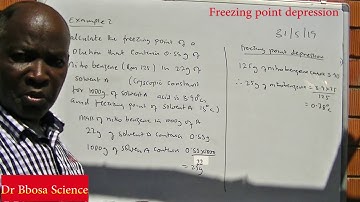 Freezing point depression
Example 2
Calculate the freezing point of a
solution that contains 0.55g of
Nitrobenzene (RMM 125) in 22g of
solvent A (Cryoscopic constant
for 1000g of solvent acid is 3.90°C
and freezing point of solvent A
Mass of nitrobenzene in 1000g of A
22g of solvent A contain 0.55g
1000g of solvent A contain 0.55x1000
22
= 25g
31/5/19
Freezing point depression
125g of nitrobenzene cause 3.90
∴ 25g of nitrobenzene = 3.9x25
125
= 0.78°C
Dr Bbosa Science